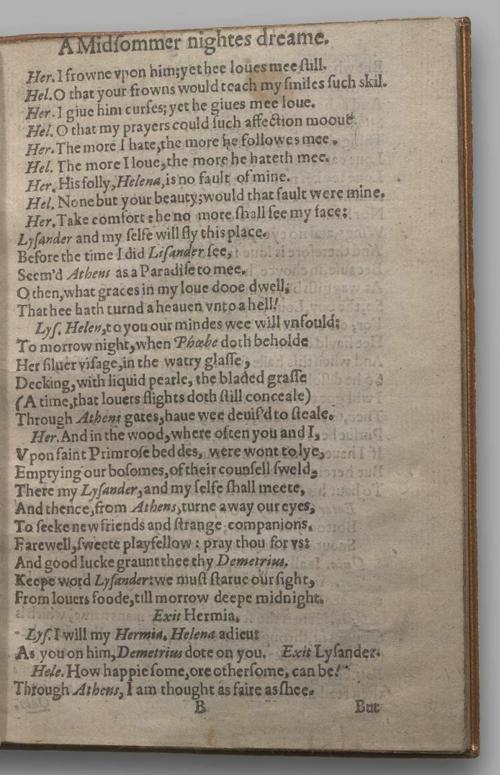 A Midſommer nightes dreame.
Her. I frowne vpon him; yet hee loues mee ſtill.
Hel. O that your frowns would teach my ſmiles ſuch skil.
Her. I giue him curſes; yet he giues mee loue.
Hel. O that my prayers could ſuch affection mooue.
Her. The more I hate, the more he followes mee.
Hel. The more I loue, the more he hateth mee.
Her. His folly, Helena, is no fault of mine.
Hel. None but your beauty; would that fault were mine.
Her. Take comfort: he no more ſhall ſee my face:
Lyſander and my ſelfe will fly this place.
Before the time I did Liſander ſee,
Seem'd Athens as a Paradiſe to mee.
O then, what graces in my loue dooe dwell,
That hee hath turnd a heauen vnto a hell!
Lyſ. Helen, to you our mindes wee will vnfould:
To morrow night, when Phœbe doth beholde
Her ſiluer viſage, in the watry glaſſe,
Decking, with liquid pearle, the bladed graſſe
(A time, that louers flights doth ſtill conceale)
Through Athens gates, haue wee deuiſ'd to ſteale.
Her. And in the wood, where often you and I,
Vpon faint Primroſe beddes, were wont to lye,
Emptying our boſomes, of their counſell ſweld,
There my Lyſander, and my ſelfe ſhall meete,
And thence, from Athens, turne away our eyes,
To ſeeke new friends and ſtrange companions.
Farewell, ſweete playfellow: pray thou for vs:
And good lucke graunt thee thy Demetrius.
Keepe word Lyſander: we muſt ſtarue our ſight,
From louers foode, till morrow deepe midnight.
Exit Hermia.
Lyſ. I will my Hermia. Helena adieu:
As you on him, Demetrius dote on you. Exit Lyſander.
Hele. How happie ſome, ore otherſome, can be!
Through Athens, I am thought as faire as ſhee.
B
But